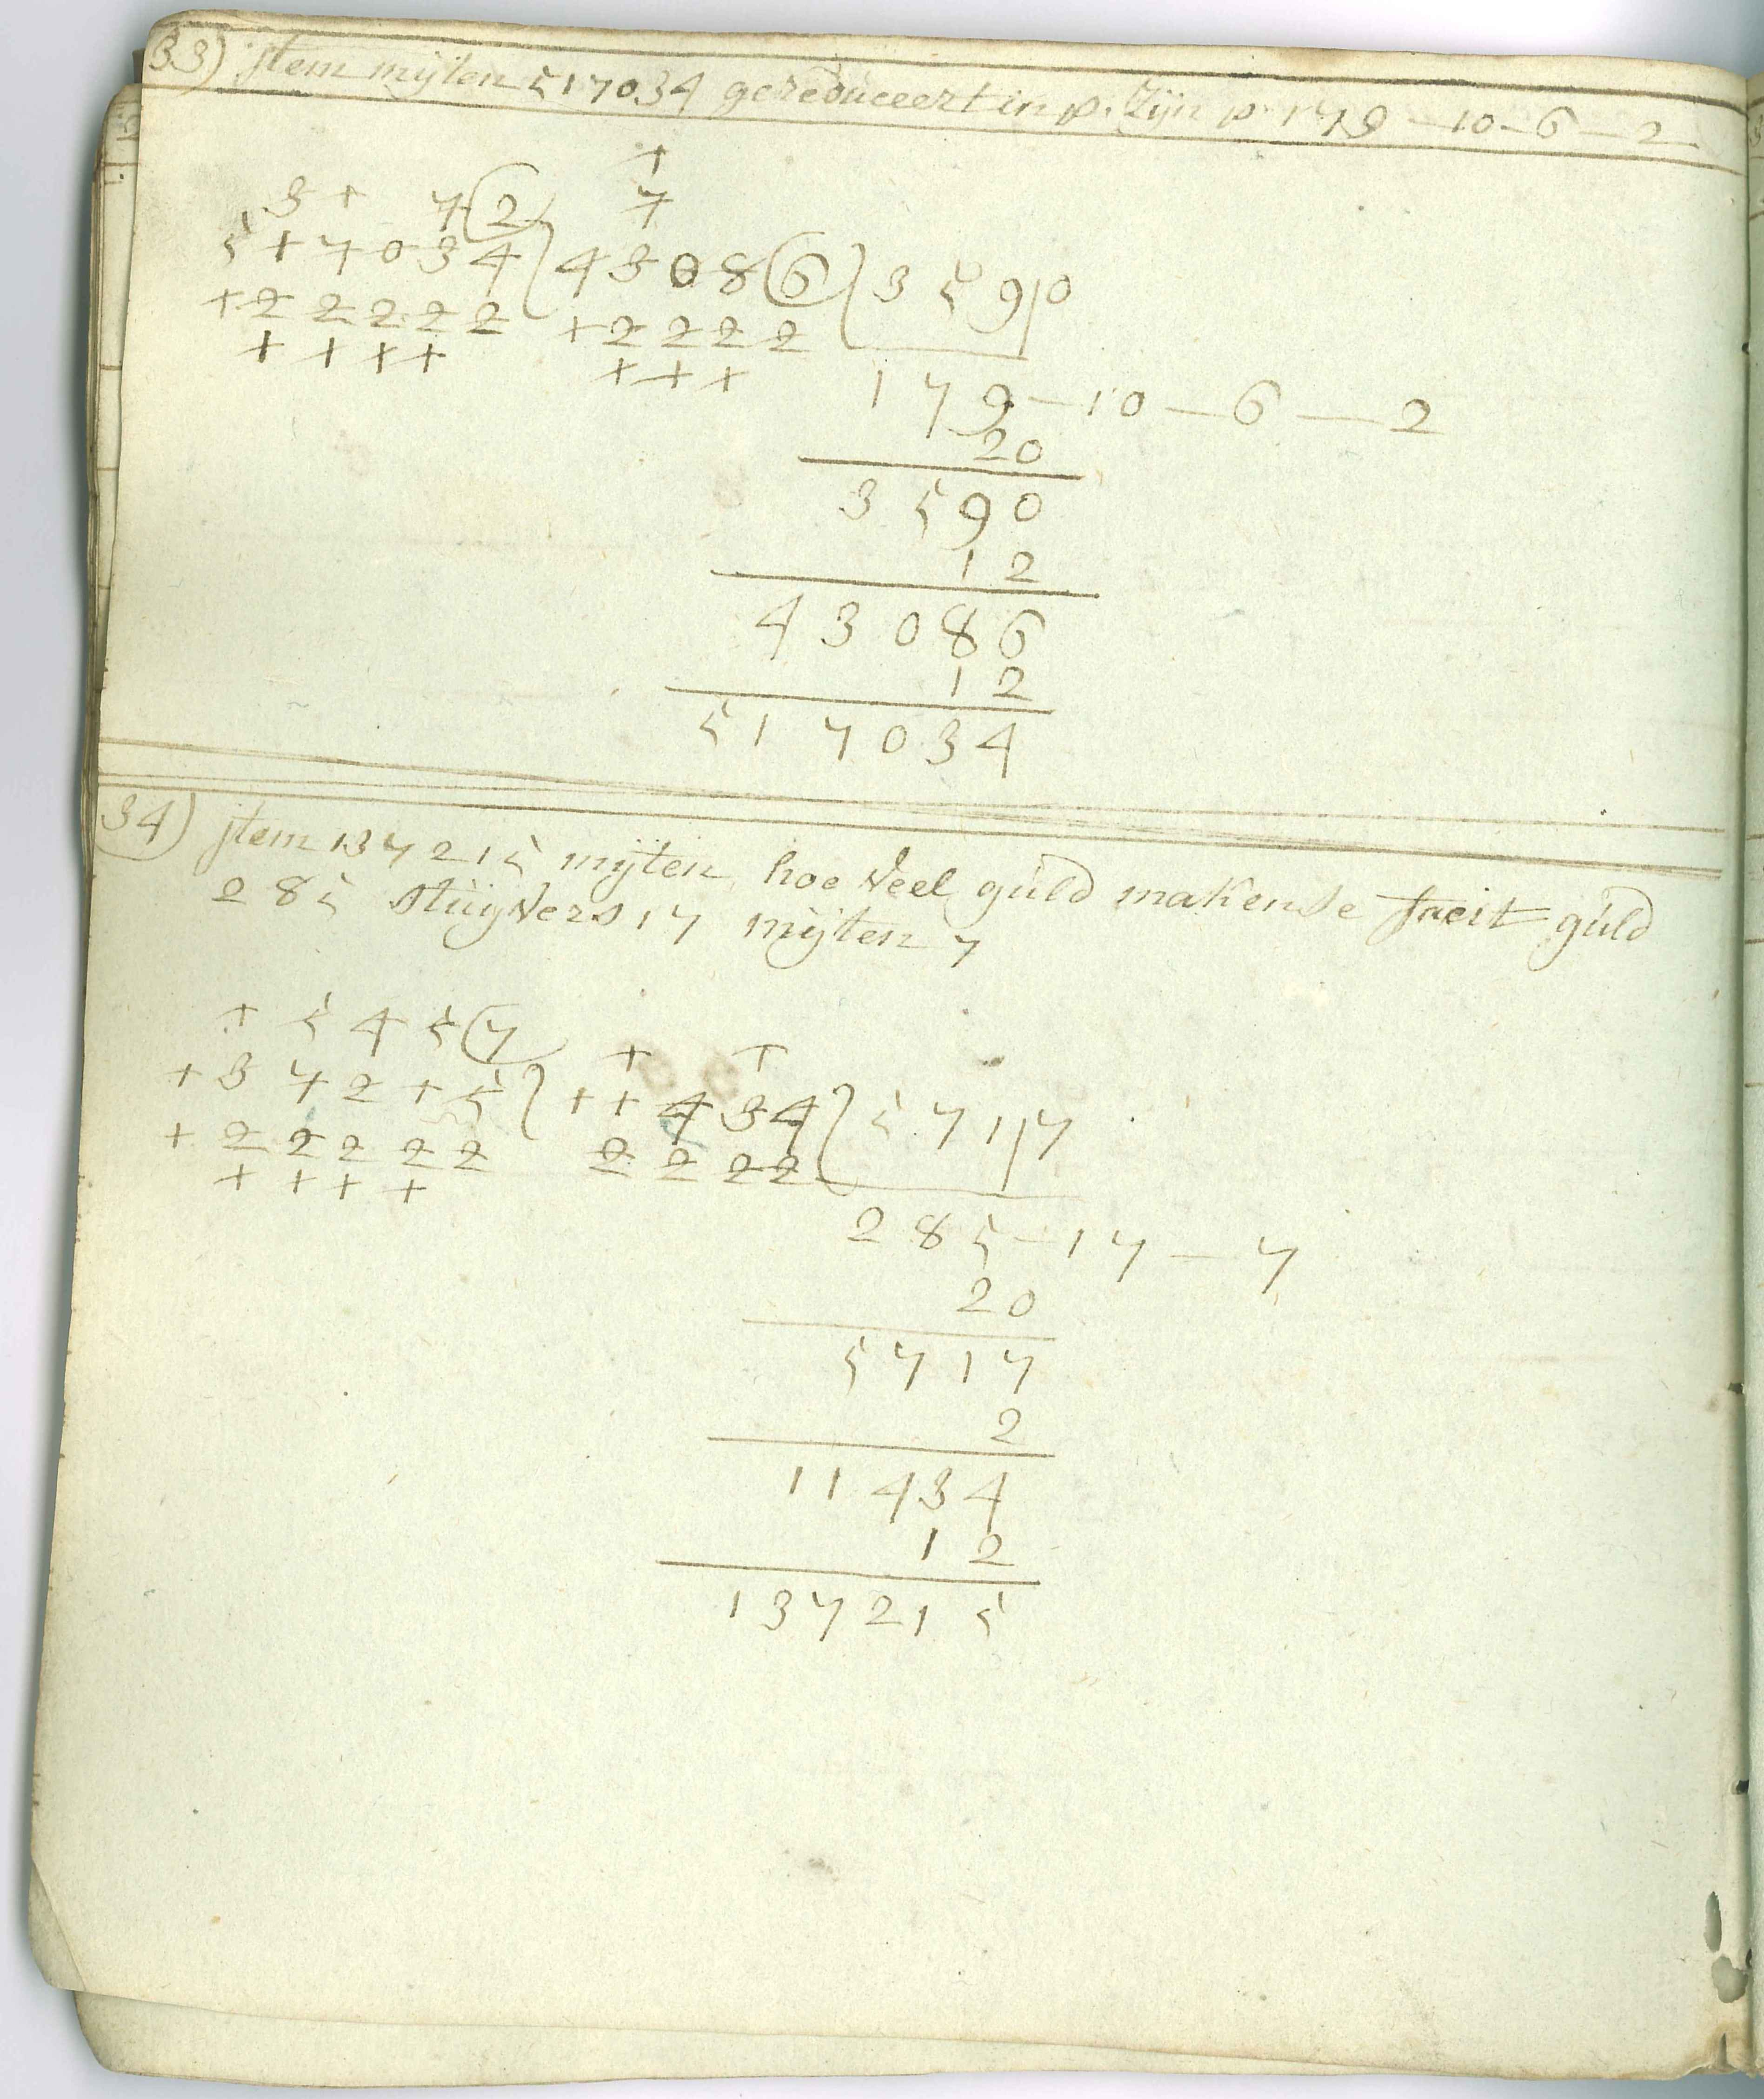 33) jtem mijten 517034 gereduceert in p. Zijn p. 179 — 10 — 6 — 2
+
3 + 7 (2) 7
5 + 7 0 3 4 } 4 3 0 8 (6) } 3 5 9 | 0
+ 2 2 2 2 2 + 2 2 2 2
+ + + + + + +
179 — 10 — 6 — 2
20
3590
12
43086
12
517034
34) jtem 137215 mijten, hoe veel guld maken se facit guld
285 stuijvers 17 mijten 7
+ 5 4 5 (7) + +
+ 3 7 2 + 5 } + + 4 3 4 } 5 7 1 | 7
+ 2 2 2 2 2 2 2 2 2
+ + + +
285 — 17 — 7
20
5717
2
11434
12
137215